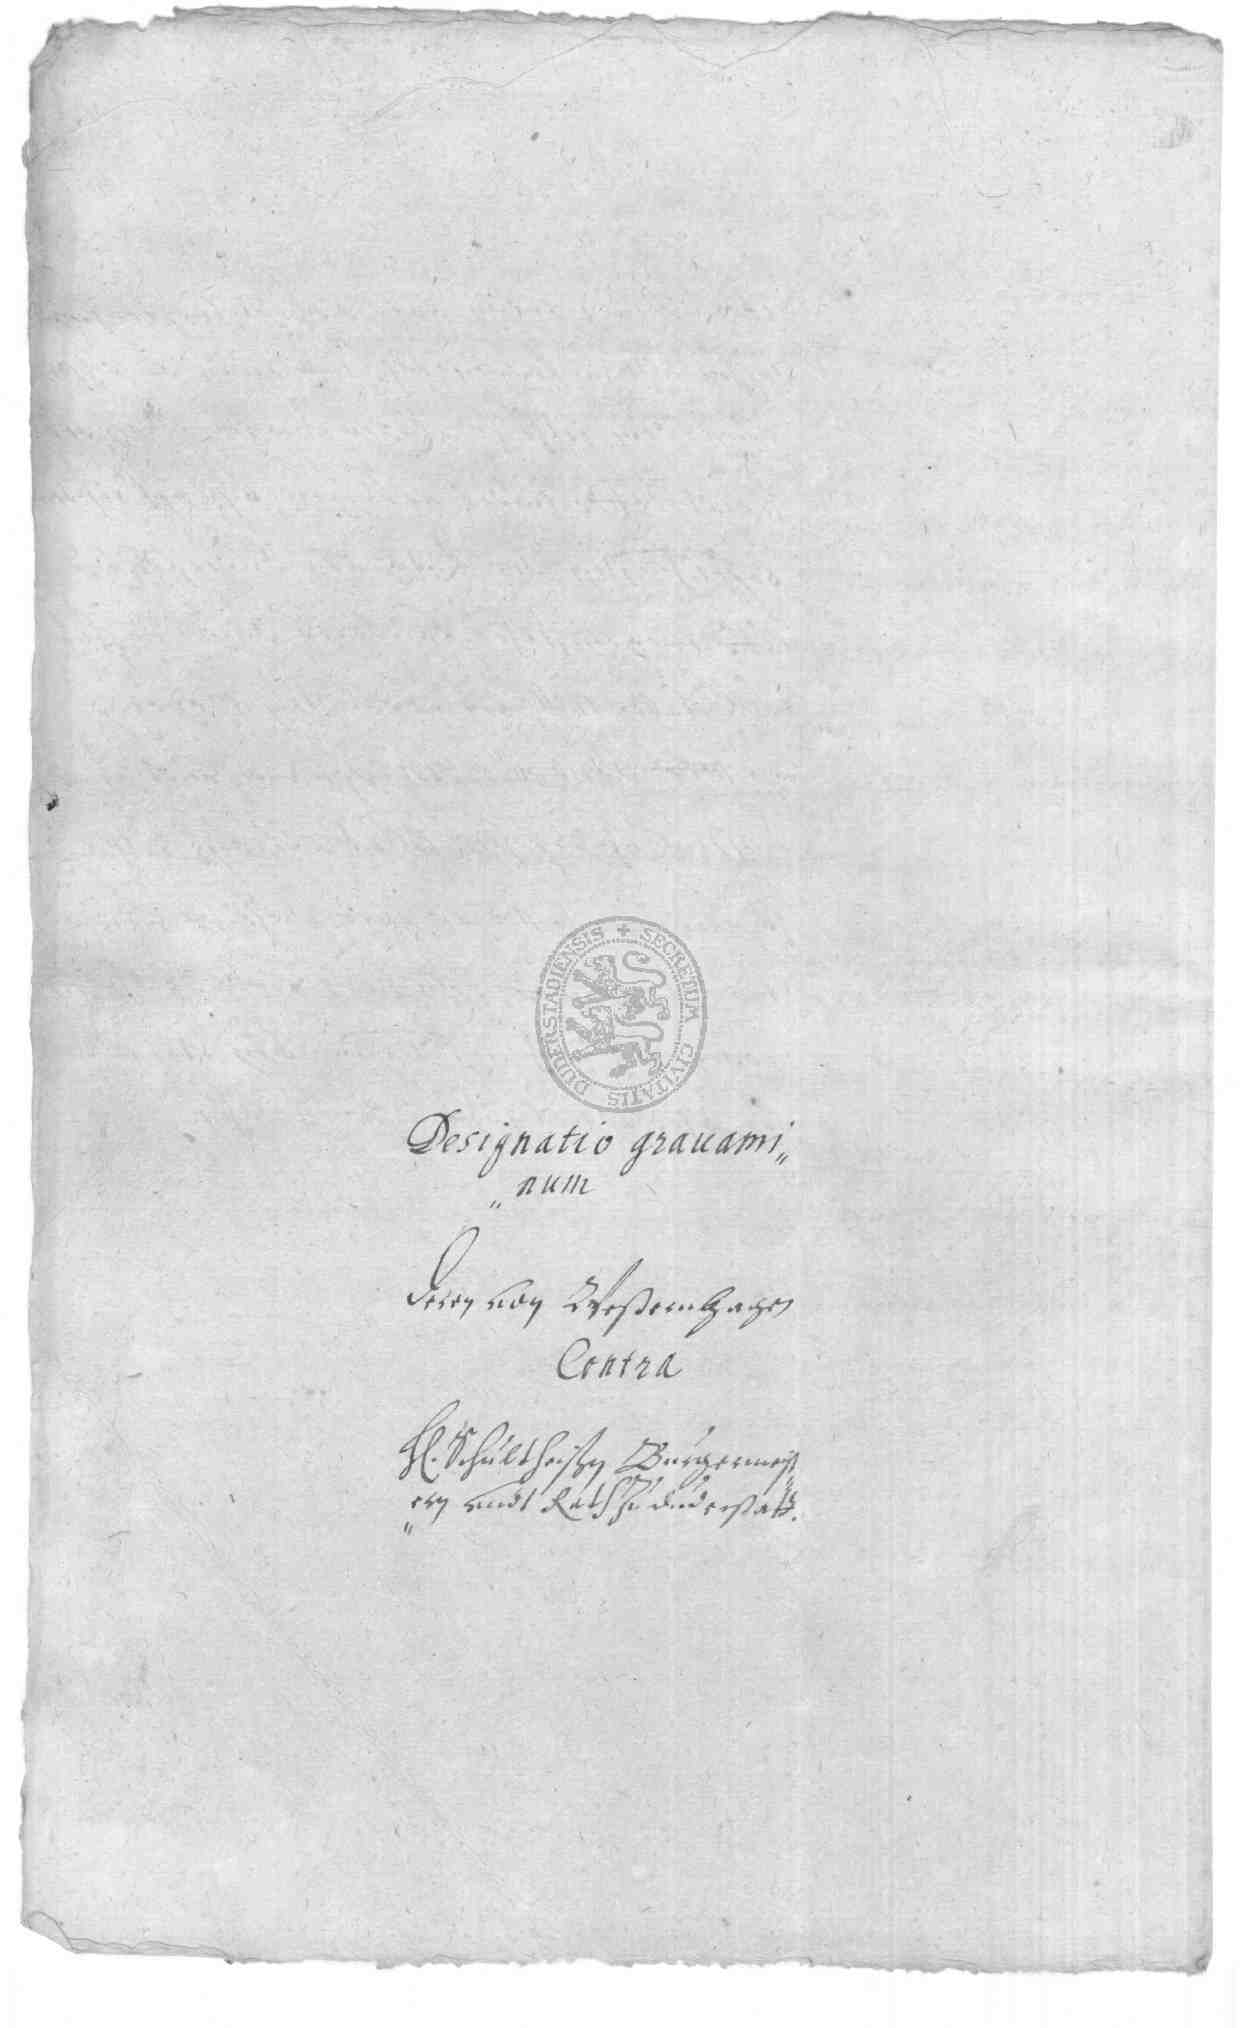 SECRETUM CIVITATIS DUDERSTADIENSIS
Designatio grauami„
„num
Deren von Westernhagen
Contra
H. Schultheißen Bürgermeist„
„ern undt Rath zu Duderstatt.